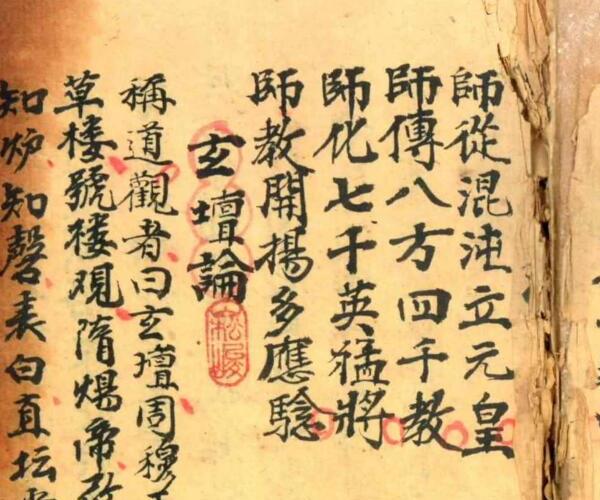 師從混沌立元皇
師傳八方四千教
師化七千英猛將
師教開揚多應驗
玄壇論
稱道觀者曰玄壇周穆
草楼號楼观隋煬帝
知炉知磬表白直坛